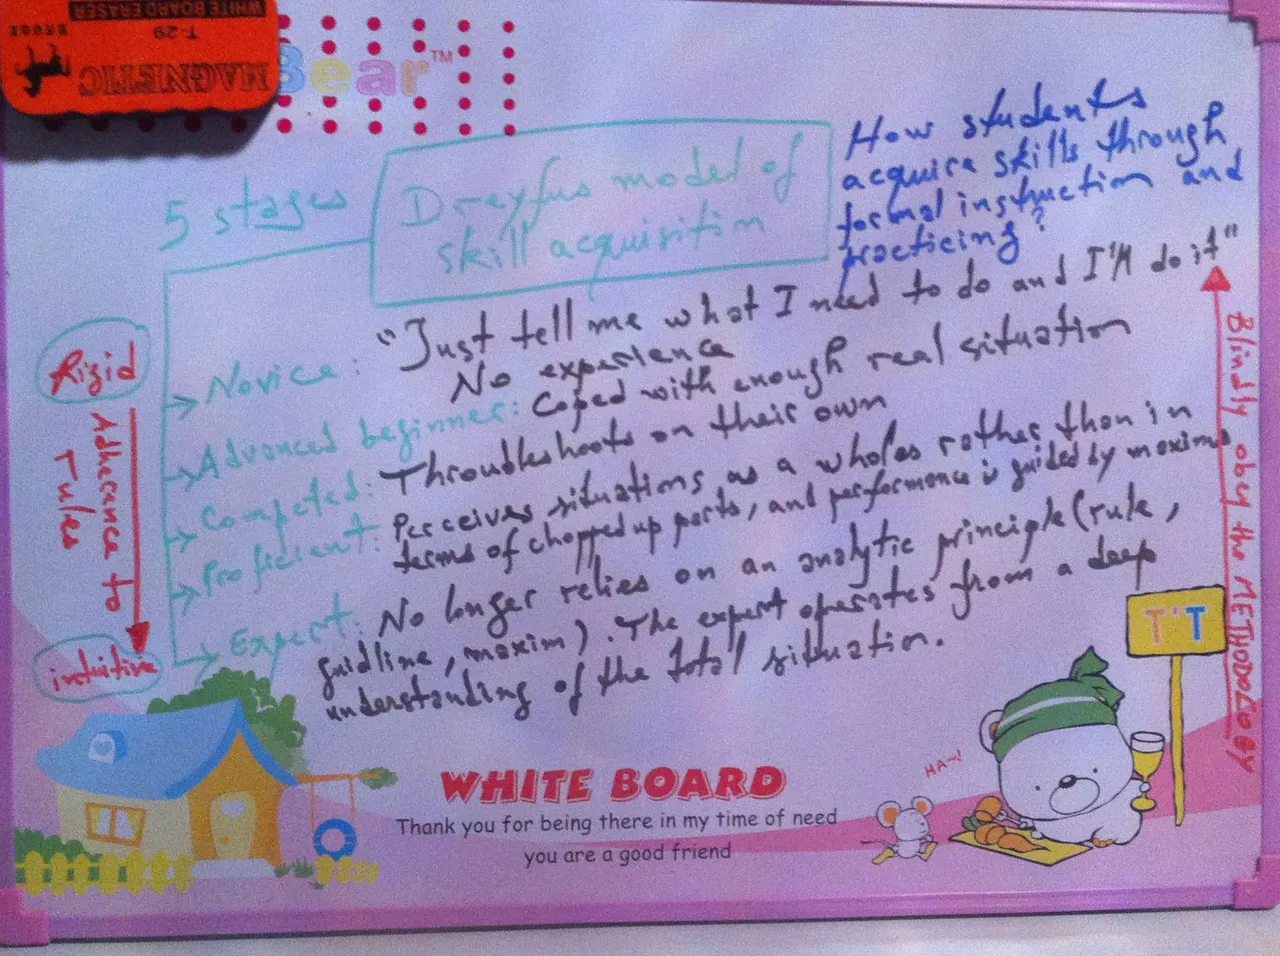 WHITE BOARD ERASER
T-29
MAGNETIC
Bear™
5 stages
Dreyfus model of
skill acquisition
How students
acquire skills through
formal instruction and
practicing?
Novice: "Just tell me what I need to do and I'll do it"
No experience
Advanced beginner: Coped with enough real situation
Competed: Throubleshoots on their own
Proficient: Perceives situations as a wholes rather than in
terms of chopped up parts, and performance is guided by maxims
Expert: No longer relies on an analytic principle (rule,
guidline, maxim). The expert operates from a deep
understanding of the total situation.
Rigid
Adherance to
rules
intuitive
Blindly obey the METHODOLOGY
T'T
HA~!
WHITE BOARD
Thank you for being there in my time of need
you are a good friend